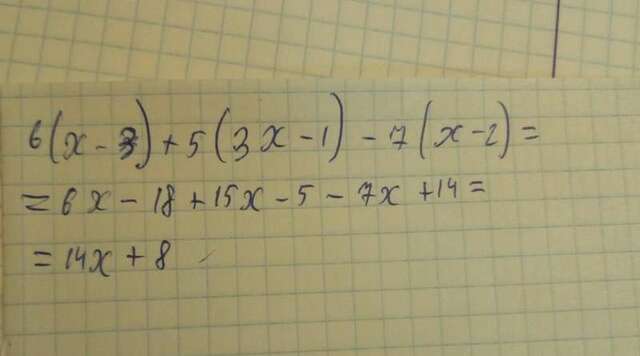 6(x-3)+5(3x-1)-7(x-2)=
=6x-18+15x-5-7x+14=
=14x+8